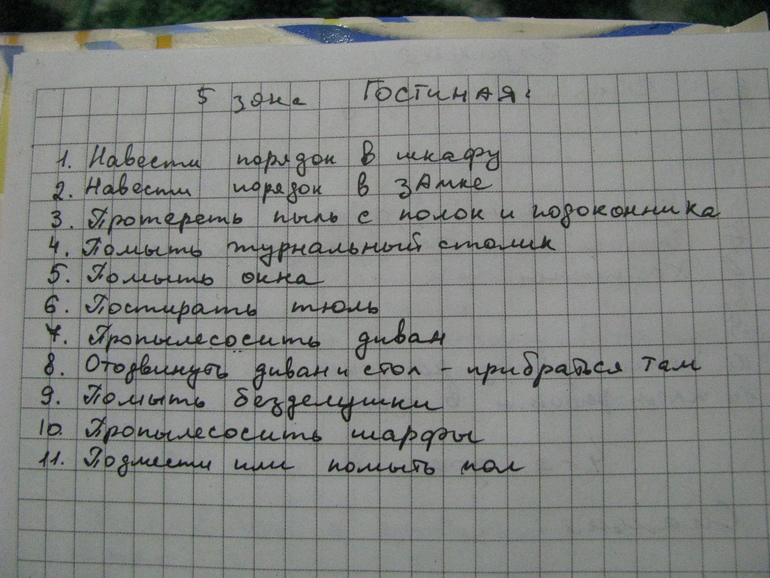 5 зона Гостиная:
1. Навести порядок в шкафу
2. Навести порядок в зАмке
3. Протереть пыль с полок и подоконника
4. Помыть журнальный столик
5. Помыть окна
6. Постирать тюль
7. Пропылесосить диван
8. Отодвинуть диван и стол - прибраться там
9. Помыть безделушки
10. Пропылесосить шарфы
11. Подмести или помыть пол